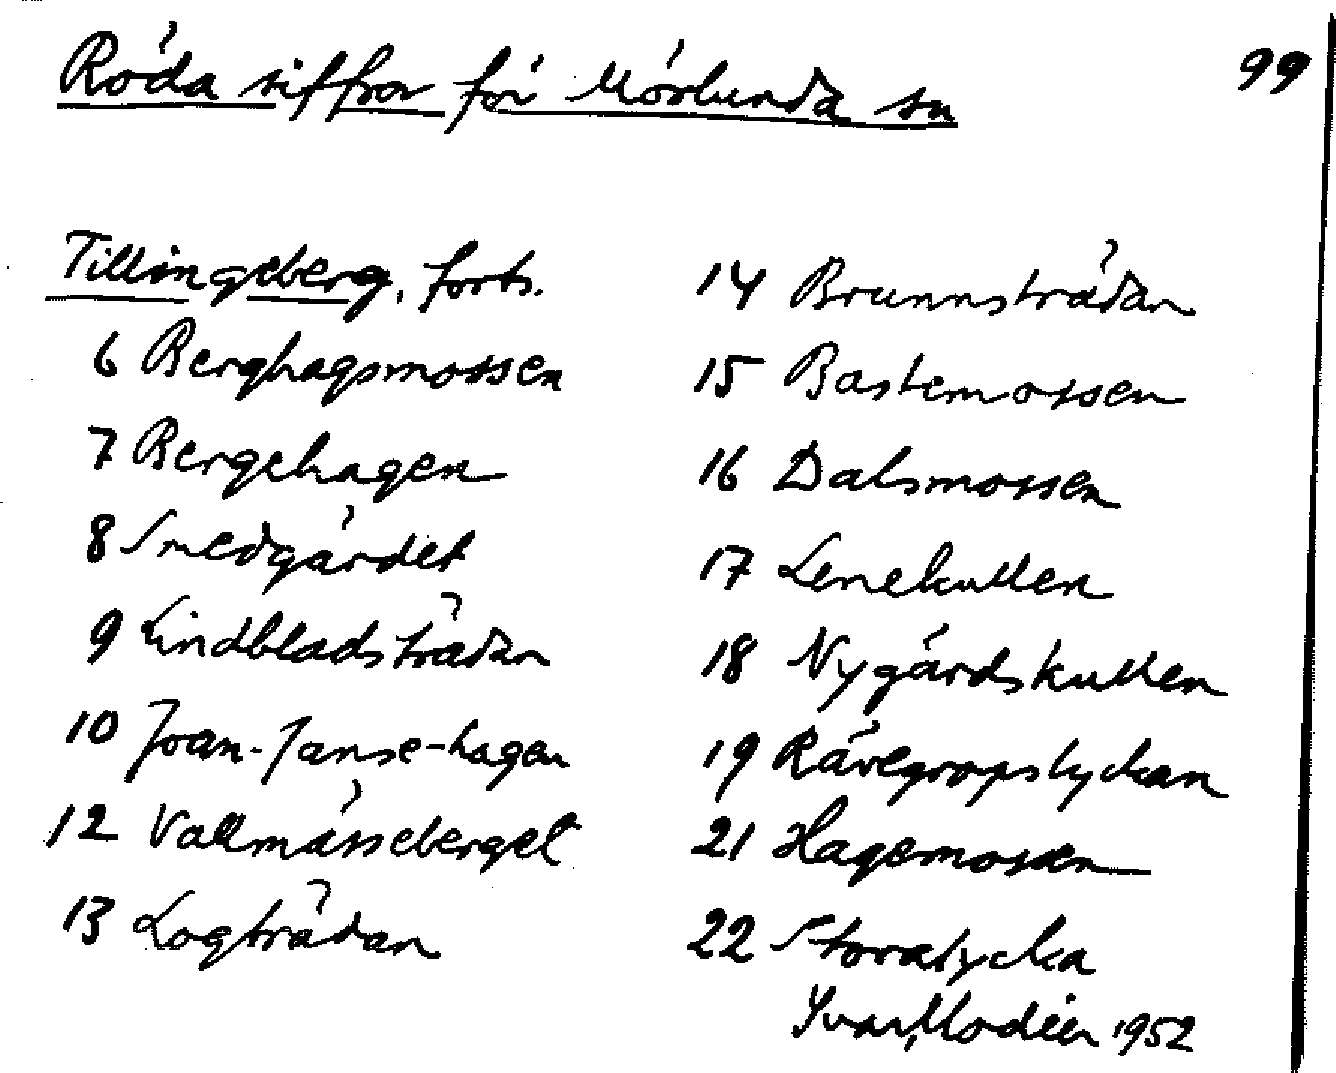 Röda siffror för Mörlunda sn
99
Tillingeberg, forts.
6 Berghagsmossen
7 Bergehagen
8 Smedgärdet
9 Lindbladsträdan
10 Joan-Janse-hagen
12 Vallmässeberget
13 Logträdan
14 Brunnsträdan
15 Bastemossen
16 Dalsmossen
17 Lenekullen
18 Nygårdskullen
19 Rävegropslyckan
21 Hagemossen
22 Storalycka
Yvar Modéer 1952